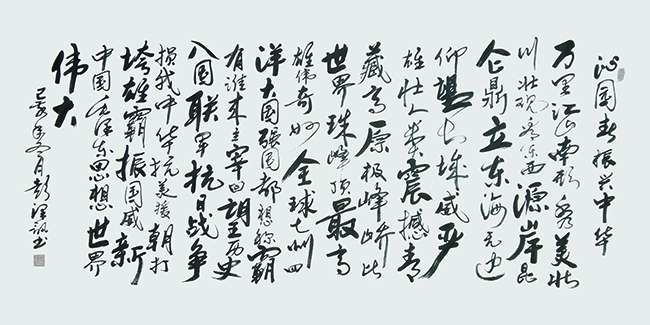 沁园春振兴中华
万里江山南秀美壮
川壮观东西源岸昆
仑鼎立东海无边
仰望长城威严
雄壮人类震撼青
藏高原极峰比
世界珠峰顶最高
雄伟奇妙全球七州四
洋大国强国都想称霸
有谁来主宰回望历史
八国联军抗日战争
损我中华抗美援朝打
垮雄霸振国威新
中国毛泽东思想世界
伟大
年月彭书